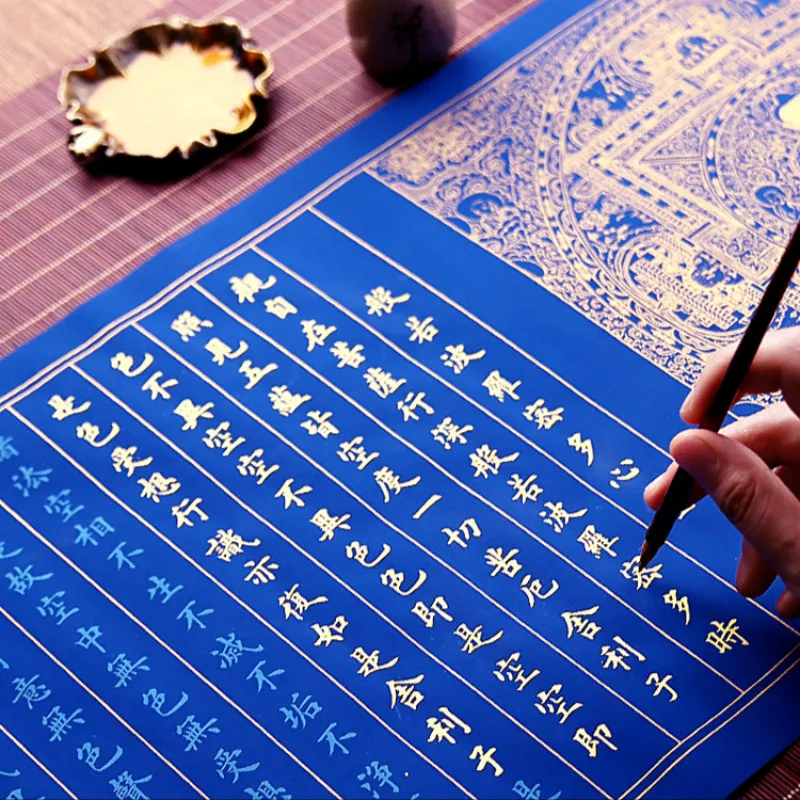 般若波羅密多心
觀自在菩薩行深般若波羅密多時
照見五蘊皆空度一切苦厄舍利子
色不異空空不異色色即是空空即
是色受想行識亦復如是舍利子是
法空相不生不滅不垢不淨
是故空中無色無受想
意無色聲